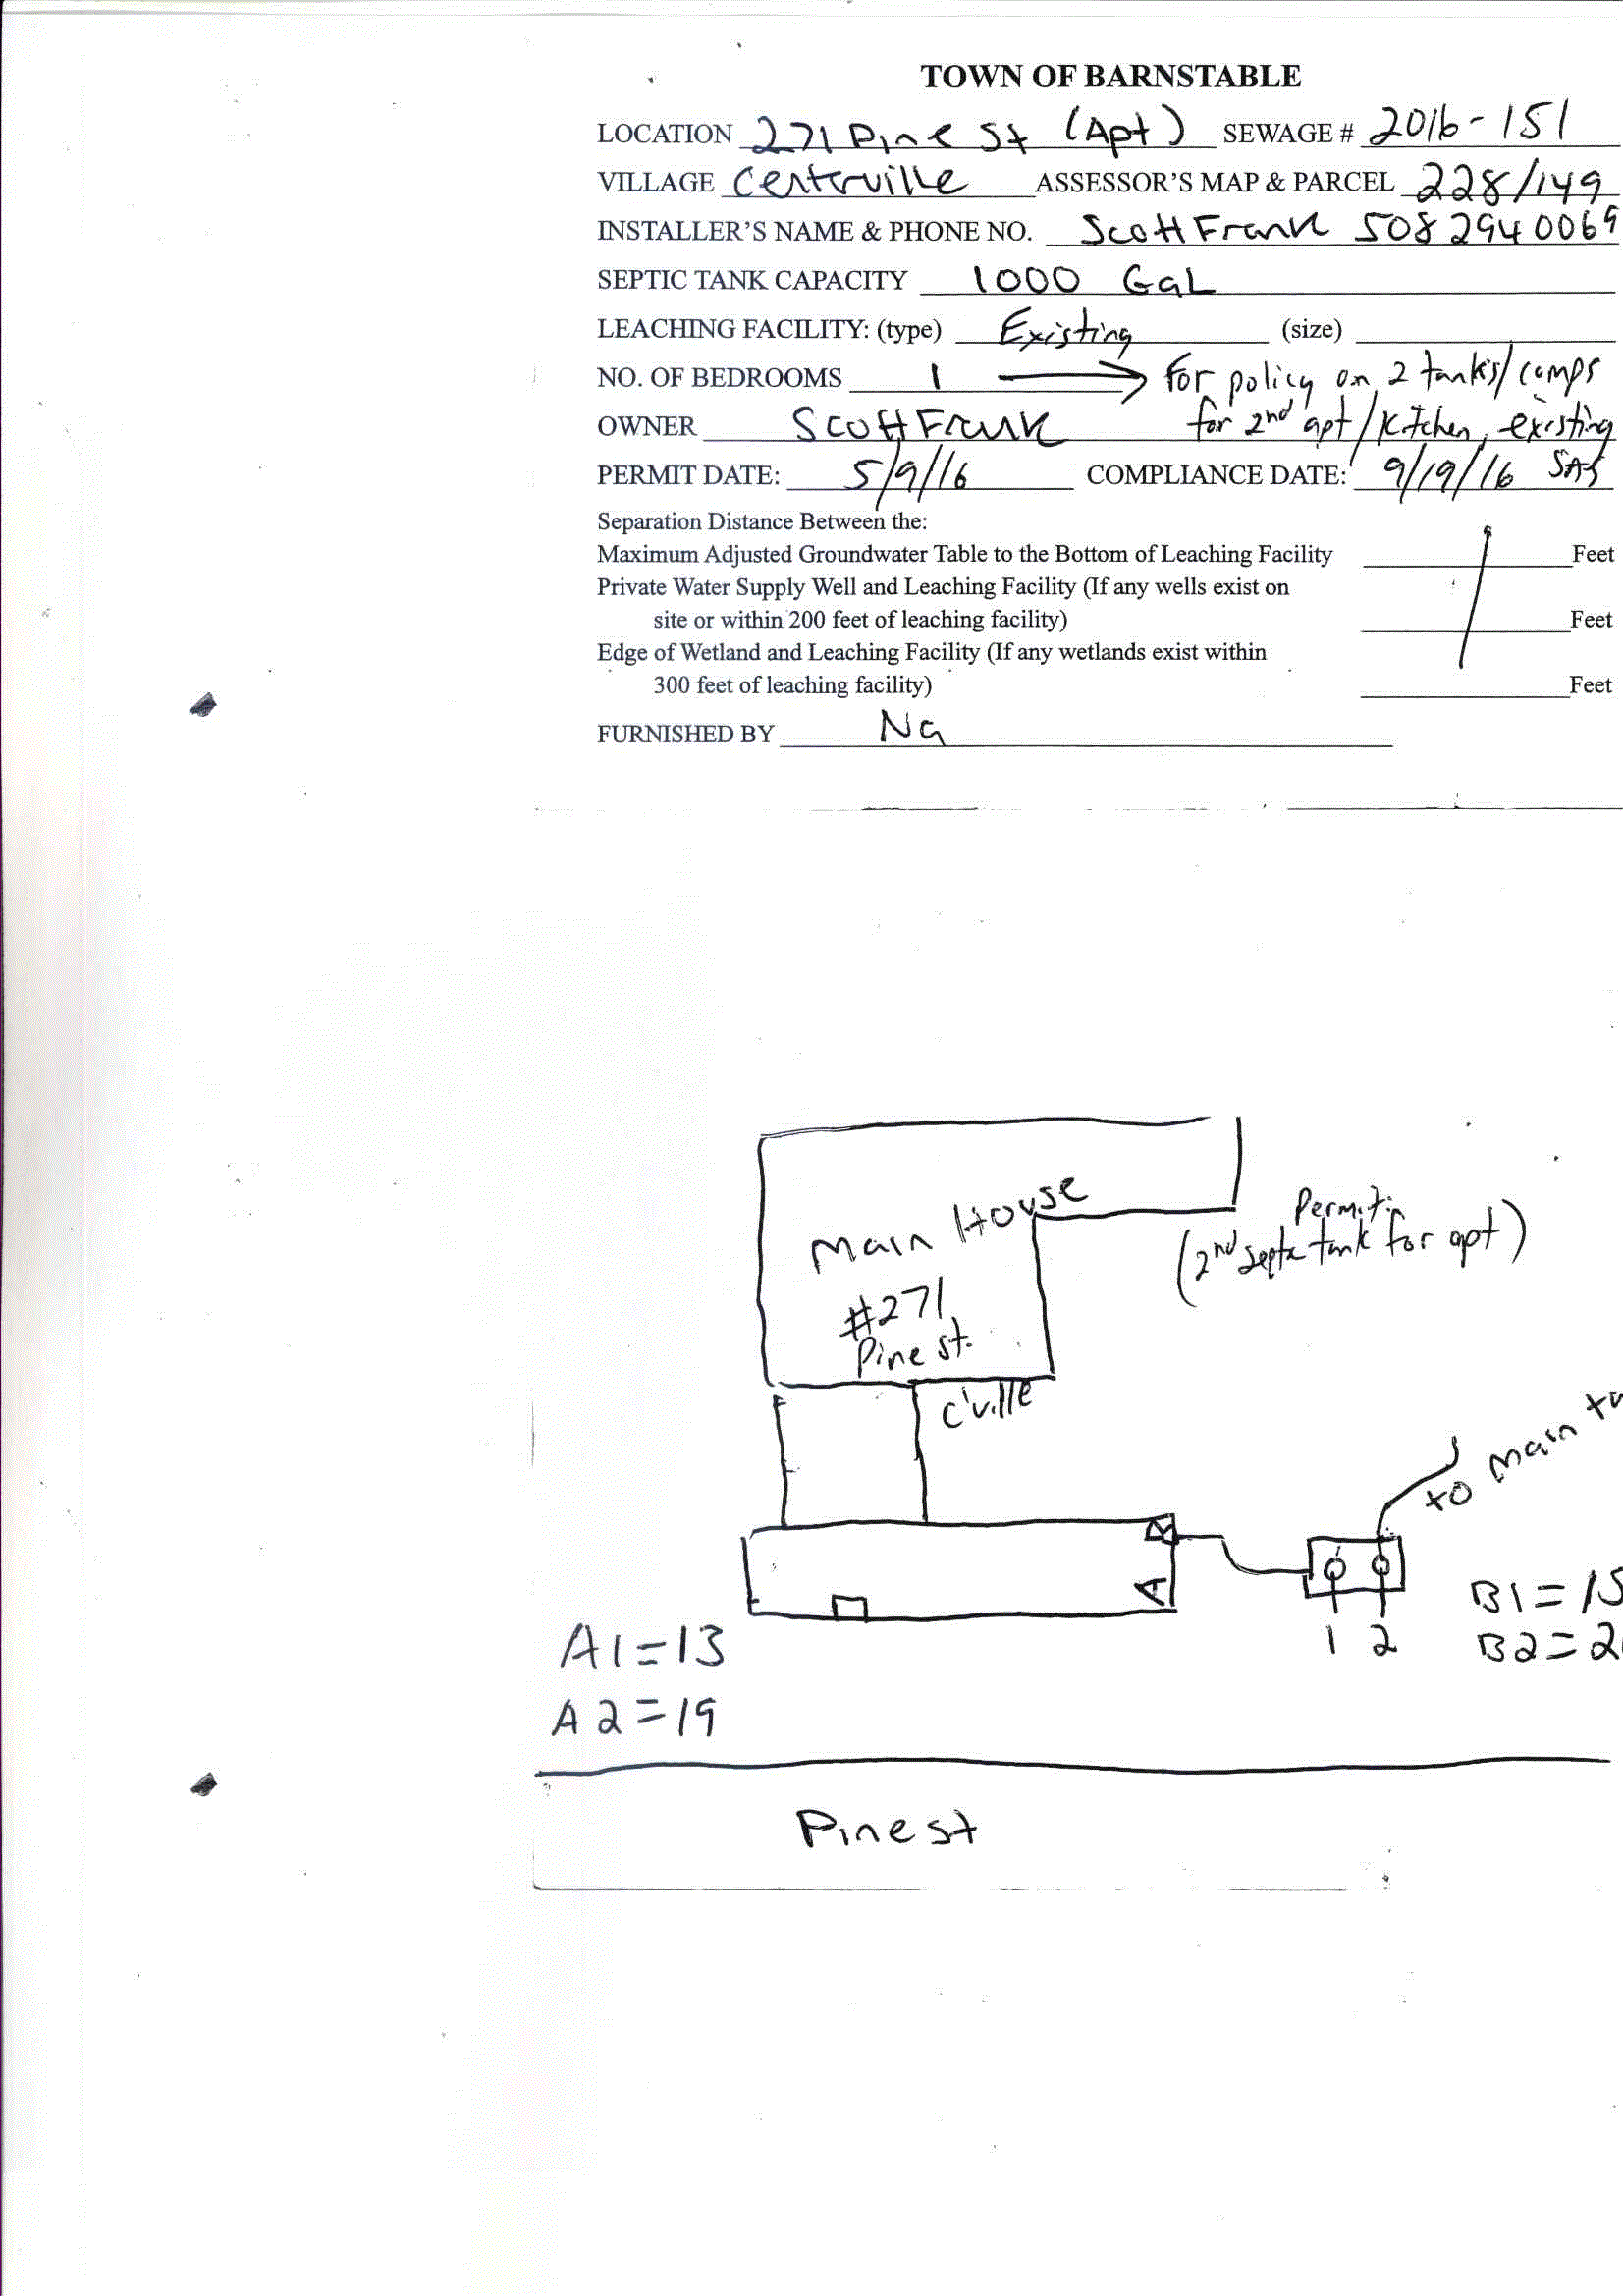 TOWN OF BARNSTABLE
LOCATION 271 Pine St (Apt) SEWAGE # 2016-151
VILLAGE Centerville ASSESSOR'S MAP & PARCEL 228/149
INSTALLER'S NAME & PHONE NO. Scott Frank 508 294 0069
SEPTIC TANK CAPACITY 1000 GaL
LEACHING FACILITY: (type) Existing (size)
NO. OF BEDROOMS 1 for policy on 2 tanks/comps
OWNER Scott Frank for 2nd apt/kitchen, existing
PERMIT DATE: 5/9/16 COMPLIANCE DATE: 9/19/16 SAS
Separation Distance Between the:
Maximum Adjusted Groundwater Table to the Bottom of Leaching Facility Feet
Private Water Supply Well and Leaching Facility (If any wells exist on
site or within 200 feet of leaching facility) Feet
Edge of Wetland and Leaching Facility (If any wetlands exist within
300 feet of leaching facility) Feet
FURNISHED BY Na
Main House
#271
Pine st.
C'ville
Permit:
(2nd septic tank for apt)
to main
B
A
1 2
B1=15
B2=2
A1=13
A2=19
Pine st